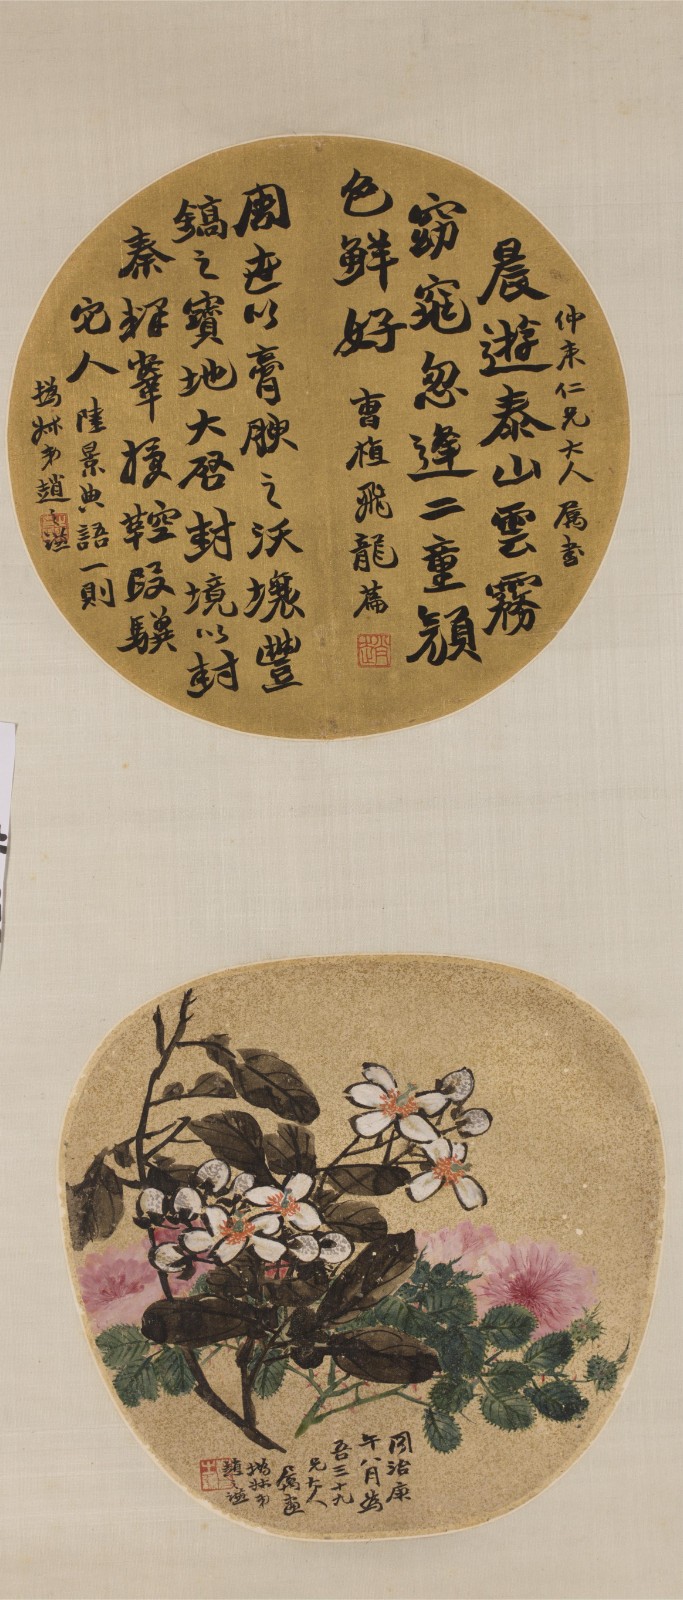 仲耒仁兄大人属書
晨遊泰山雲霧
窈窕忽逢二童顔
色鮮好 曹植飛龍篇
周世以膏腴之沃壤豐
鎬之寶地大启封境以封
秦釋授鞚叚驥
它人 陸景典語一則
撝叔弟趙之謙
同治庚
午八月為
吾三十九
兄大人
属画
撝叔弟
趙之謙